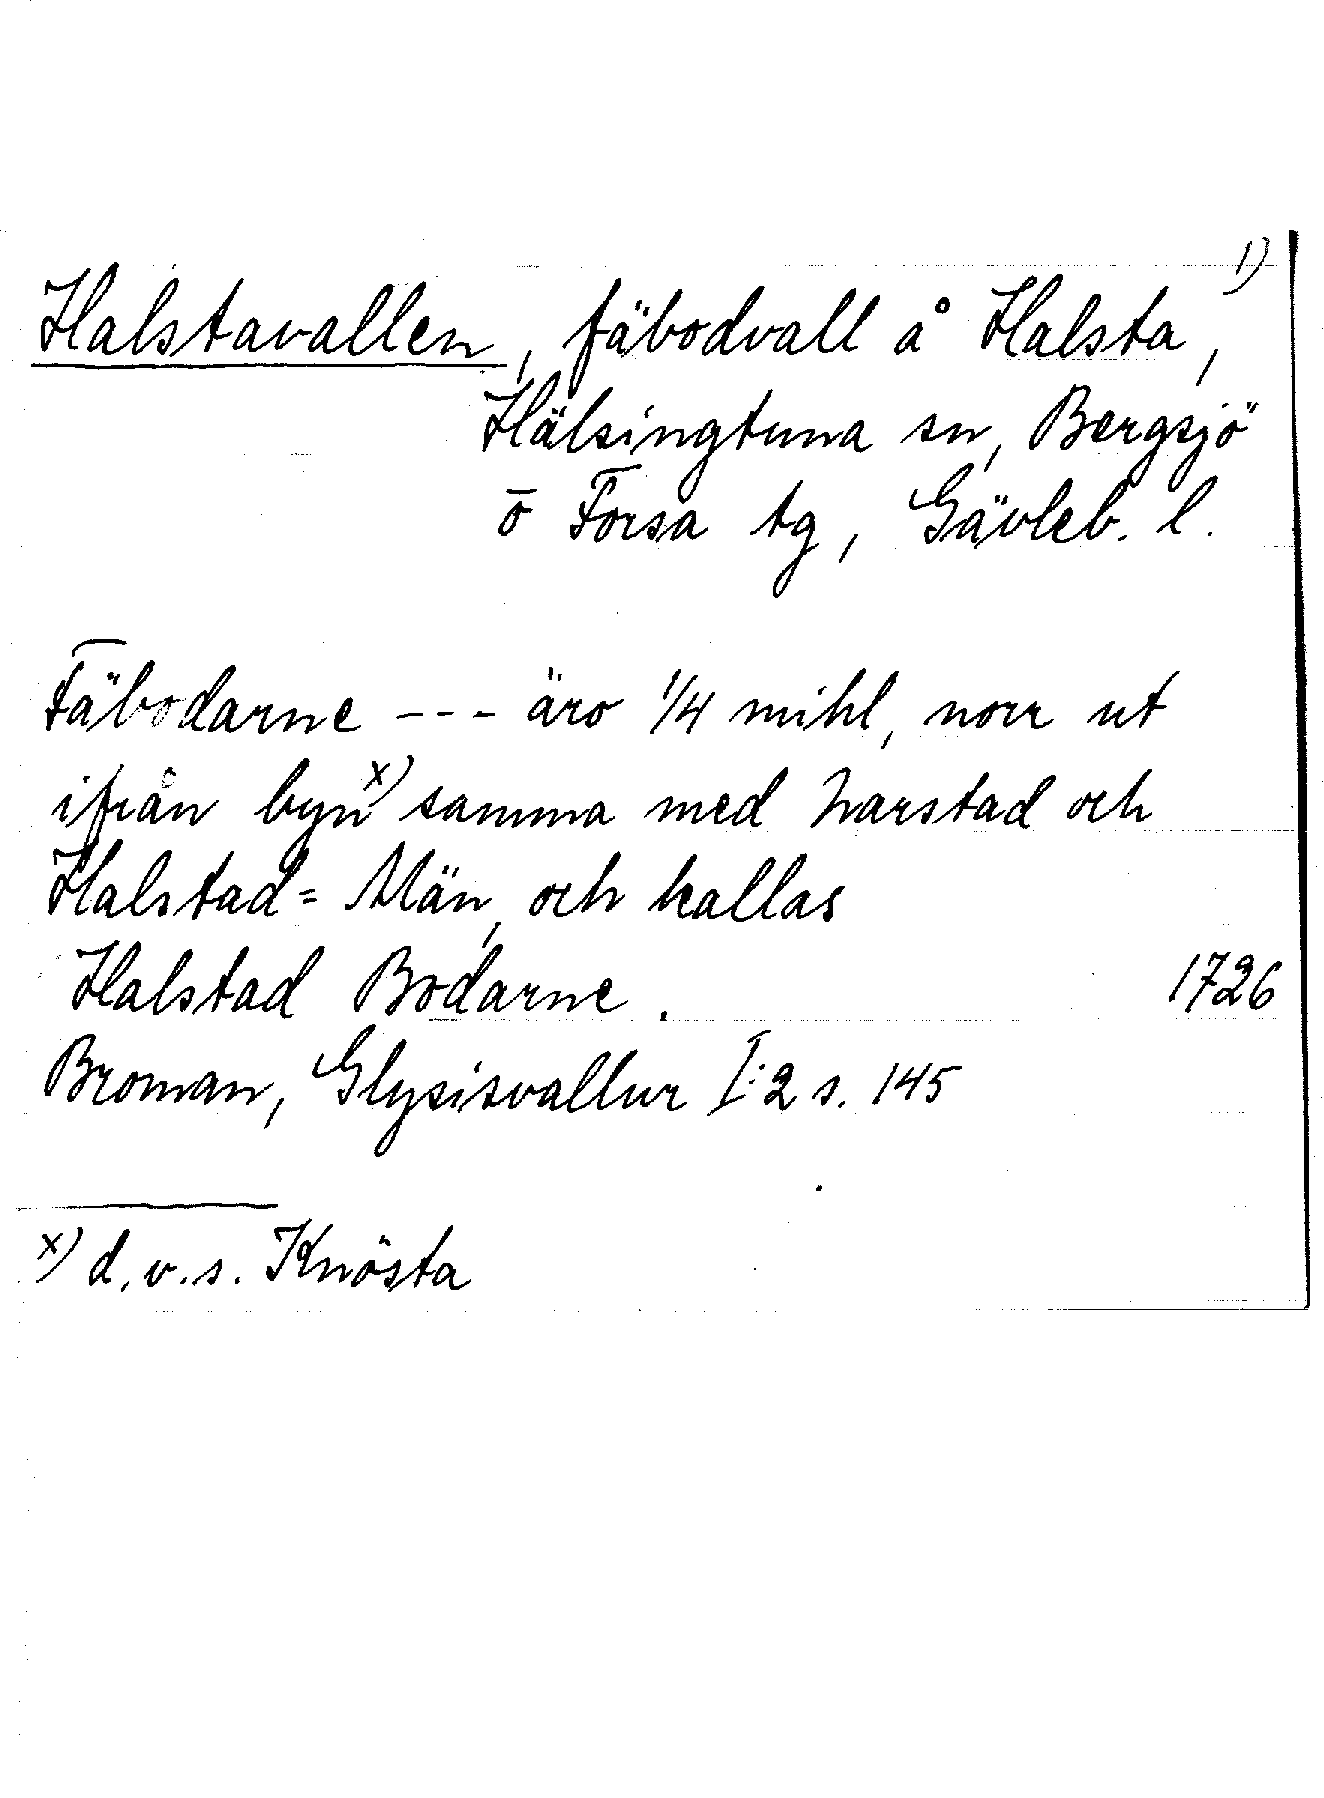 Halstavallen, fäbodvall å Halsta, 1)
Hälsingtuna sn, Bergsjö
o Forsa tg, Gävleb. l.
Fäbodarne --- äro 1/4 mihl, norr ut
ifrån byn x) samma med Narstad och
Halstad= Män, och kallas
Halstad Bodarne. 1726
Broman, Glysisvallur I:2 s. 145
x) d.v.s. Knösta